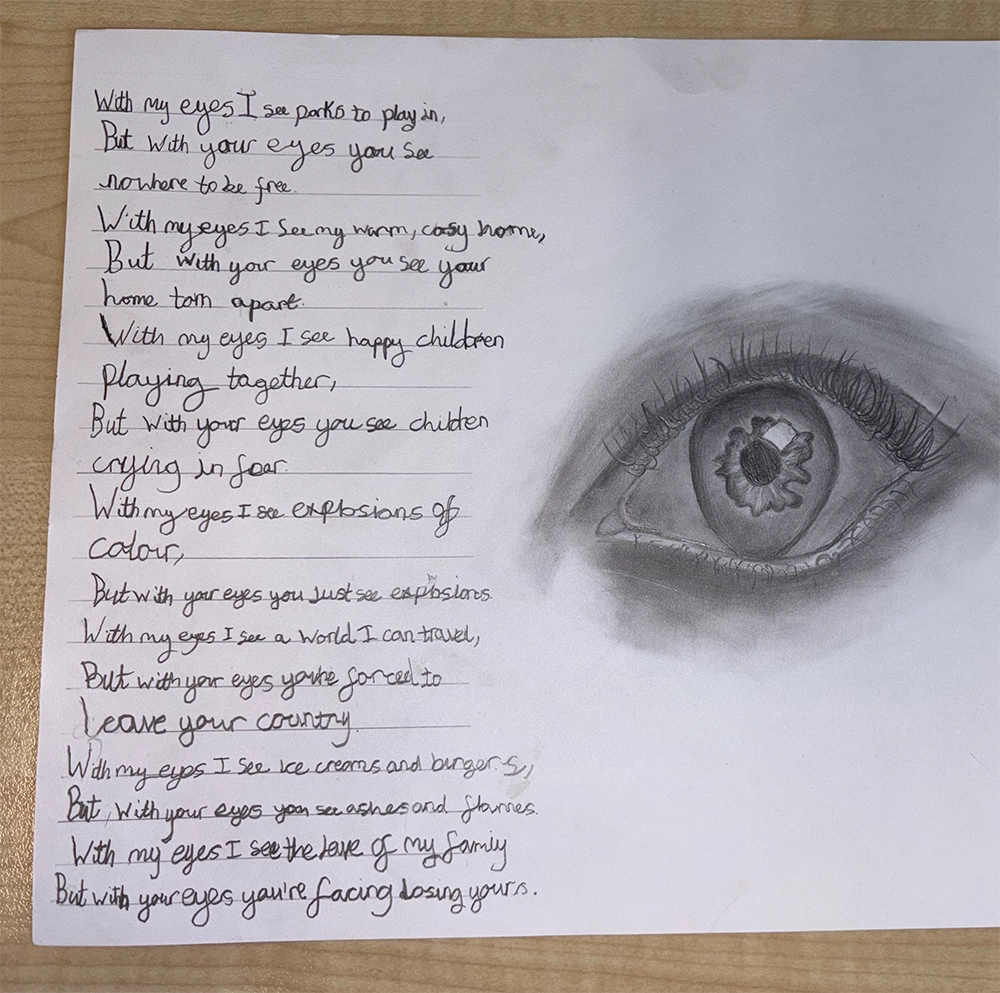 With my eyes I see parks to play in,
But with your eyes you see
nowhere to be free.
With my eyes I see my warm, cosy home,
But with your eyes you see your
home torn apart.
With my eyes I see happy children
playing together,
But with your eyes you see children
crying in fear.
With my eyes I see explosions of
colour,
But with your eyes you just see explosions.
With my eyes I see a world I can travel,
But with your eyes you're forced to
leave your country.
With my eyes I see ice creams and burgers,
But, with your eyes you see ashes and flames.
With my eyes I see the love of my famiy
But with your eyes you're facing losing yours.